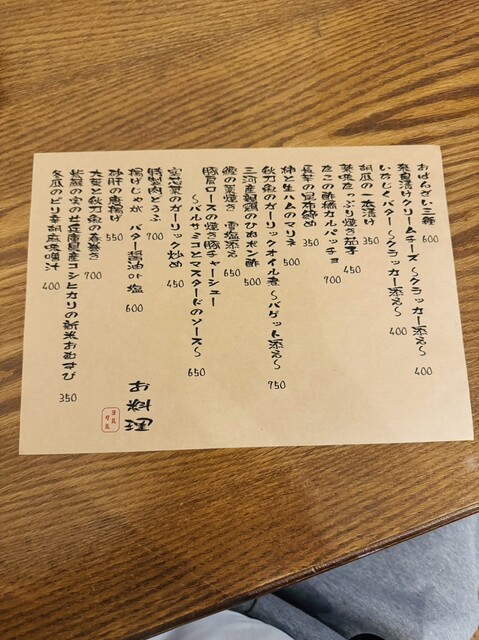 おばんざい三種 600
奈良漬けクリームチーズ 〜クラッカー添え〜 400
いちじくバター 〜クラッカー添え〜 400
胡瓜の一本漬け 350
薬味たっぷり焼き茄子 450
たこの酢橘カルパッチョ 700
長芋の昆布締め 350
柿と生ハムのマリネ 500
秋刀魚のガーリックオイル煮 〜バゲット添え〜 750
三河産親鶏のひねポン酢 500
鰹の藁焼き 雪塩添え 650
豚肩ロースの焼き豚チャーシュー
〜バルサミコとマスタードのソース〜 650
空芯菜のガーリック炒め 450
特製肉どうふ 700
揚げじゃが バター醤油or塩 600
砂肝の唐揚げ 550
大葉と秋刀魚の春巻き 700
紫蘇の実のせ兵庫県産コシヒカリの新米おむすび 350
冬瓜のピリ辛胡麻味噌汁 400
お料理